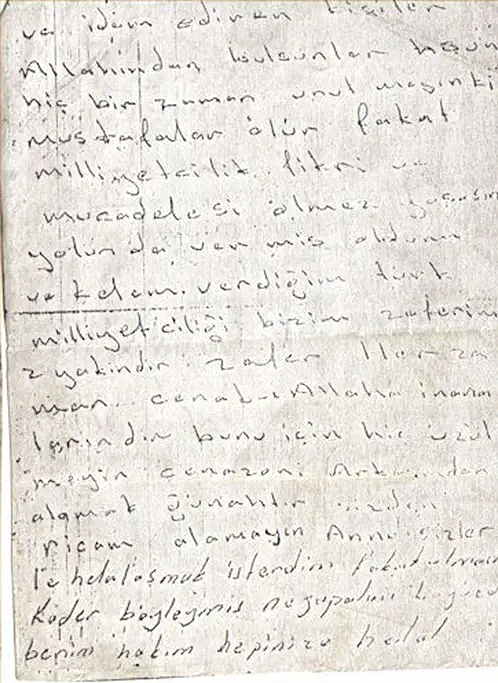 ve idam edinen kişiler
Allahından bulsunlar
hiç bir zaman unutmayınki
mustafalar ölür fakat
milliyetcilik fikri ve
mucadelesi ölmez yaşasın
yolunda ver miş oldum
ve kelam verdiğim türk
milliyeticiliği bizim zaferim
z yakindir zafer Her za
man cenab-ı Allaha inana
larındır bunu için hic üzül
meyin cenazeni Arkamdan
alamak günahtır sizden
ricam alamayın Anne sizler
le helalaşmak isterdim fakat olmadı
Kader böyleymiş ne yapalım
benim hakım hepinize helal